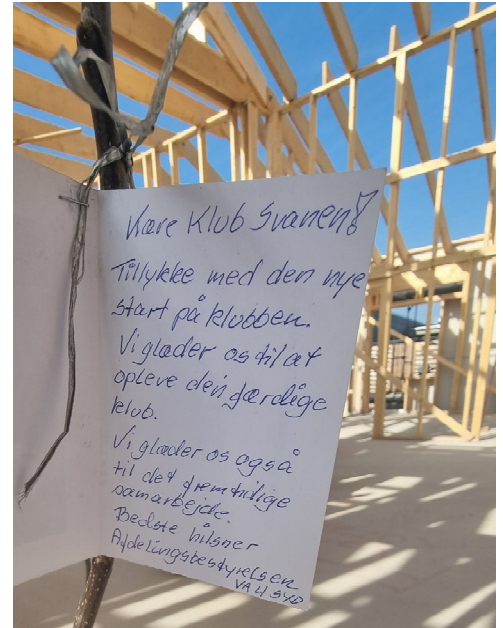 Kære Klub Svanen!
Tillykke med den nye
start på klubben.
Vi glæder os til at
opleve den færdige
klub.
Vi glæder os også
til det fremtidige
samarbejde.
Bedste hilsner
Afdelingsbestyrelsen
VA 4 SYD